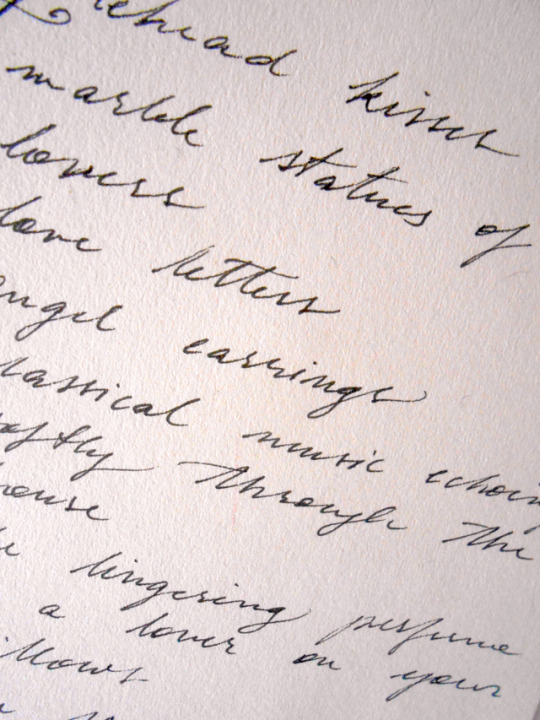 forehead kisses
marble statues of
lovers
love letters
angel earrings
classical music echoing
softly through the
house
the lingering perfume
a lover on your
pillows